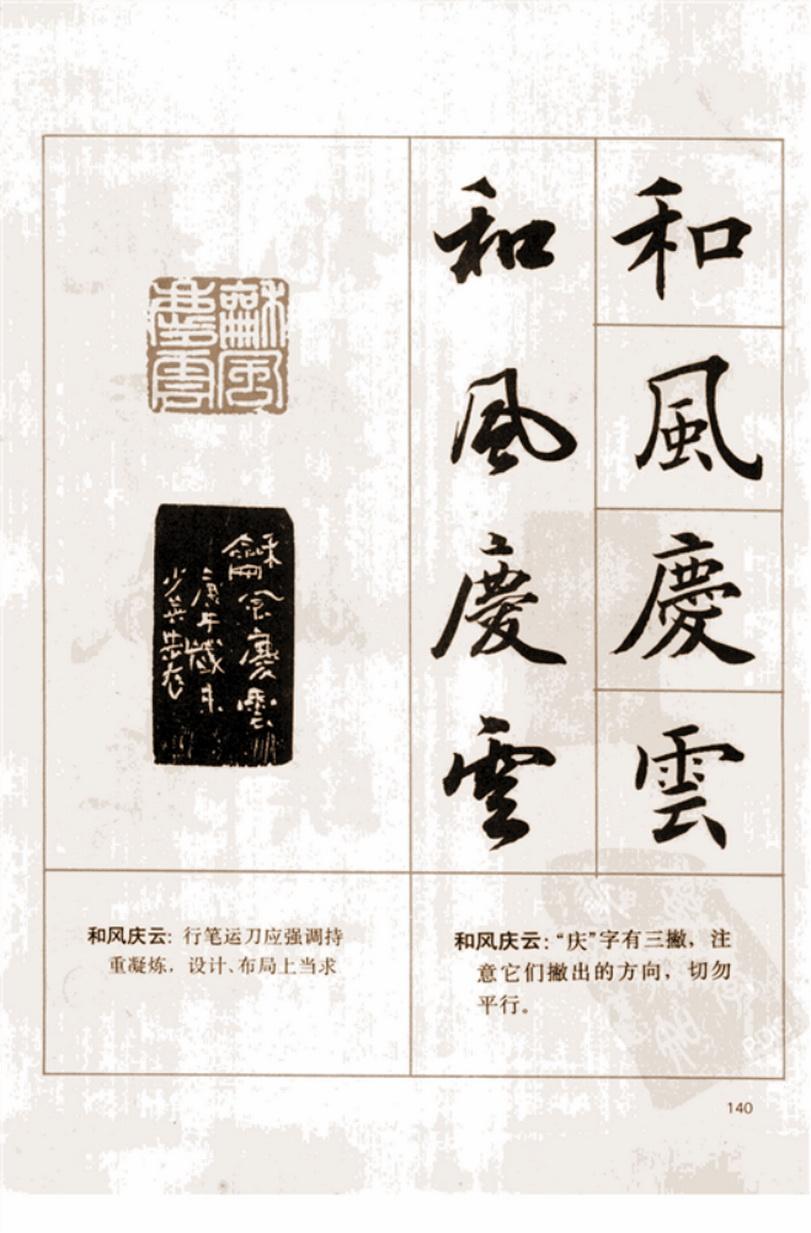 和風慶雲
和風慶雲
龢風慶雲
龢風慶雲
庚午歲末
和风庆云：行笔运刀应强调持
重凝炼，设计、布局上当求
和风庆云：“庆”字有三撇，注
意它们撇出的方向，切勿
平行。
140